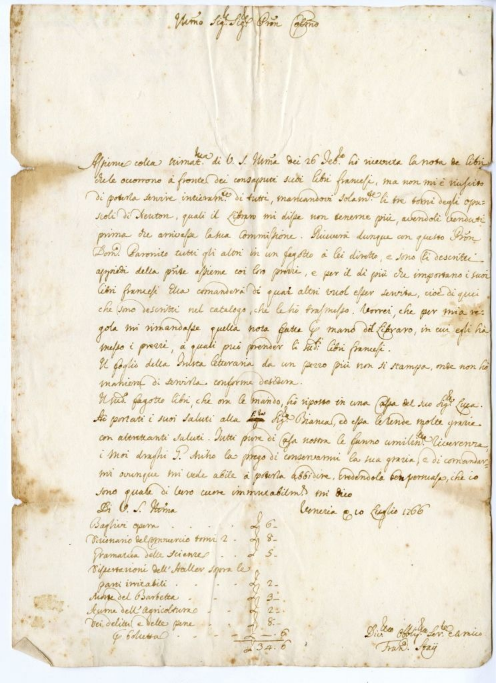 Illmo Sigr Sigr Pron Colmo
Assieme colla stimatma di V. S. Illma dei 26 Febro hò ricevuta la nota de libri
che le occorrono à fronte dei consaputi suoi libri francesi, ma non mi è riuscito
di poterla servire interamte di tutti, mancandomi solamte li tre tomi degli opu-
scoli di Neuton, quali il Libraro mi disse non tenerne più, avendoli venduti
prima che arrivasse la sua Commissione. Riceverà dunque con questo Pron
Domo Paronite tutti gli altri in un fagotto à lei diretto, e sono li descritti
appiedi della pnte assieme coi loro prezzi, e per il di più che importano i suoi
libri francesi Ella comanderà di quai altri vuol esser servita, cioè di quei
che sono descritti nel catalogo, che le hò trasmesso. Vorrei, che per mia re-
gola mi rimandasse quella nota fatta p mano del Libraro, in cui egli hà
messo i prezzi, à quali può prender li libri francesi.
Il foglio della letteraria da un pezzo più non si stampa, onde non hò
maniera di servirla conforme desidera.
Il fagotto libri, che ora le mando, hò riposto in una Cassa del suo Sigr Luca.
Hò portati i suoi saluti alla Sigra Bianca, ed essa le rende molte grazie
con altrettanti saluti. Tutti pure di Casa nostra le fanno umilma riverenza
i prego di conservarmi la sua grazia, e di comandar-
mi ovunque mi vede abile à poterla ubbidire, credendola ben persuasa, che io
sono quale di vero cuore immutabilmte mi dico
Di V. S. Illma Venezia p 10 Luglio 1766
Baglivi opera 6-
Dizionario del Commercio tomi 2 8-
Gramatica delle scienze 5.
Dissertazioni dell'Haller sopra le
parti irritabili 2-
2-
dell'agricoltura 2-
Dei delitti e delle pene 8-
p
34. 6
Servre ed Amico
Stay